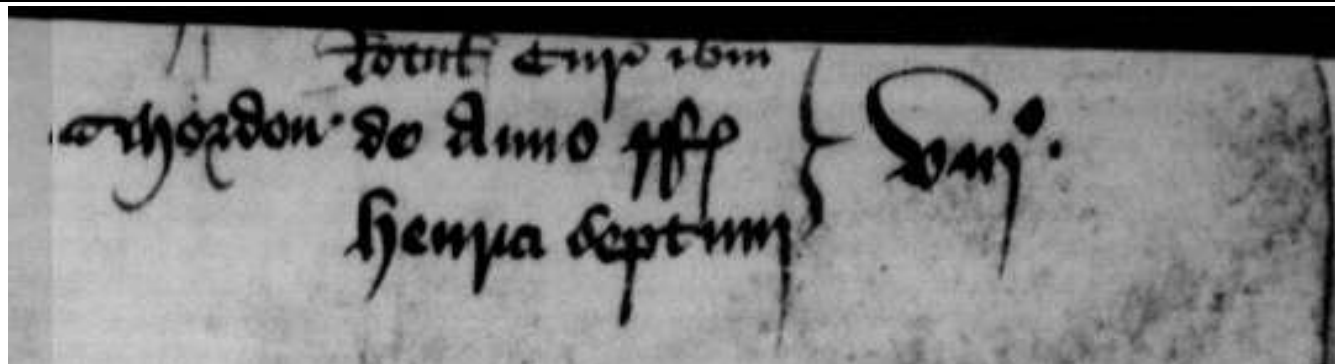 Rotul Cur ibm
Thordon de Anno
henrici septimi
viijo